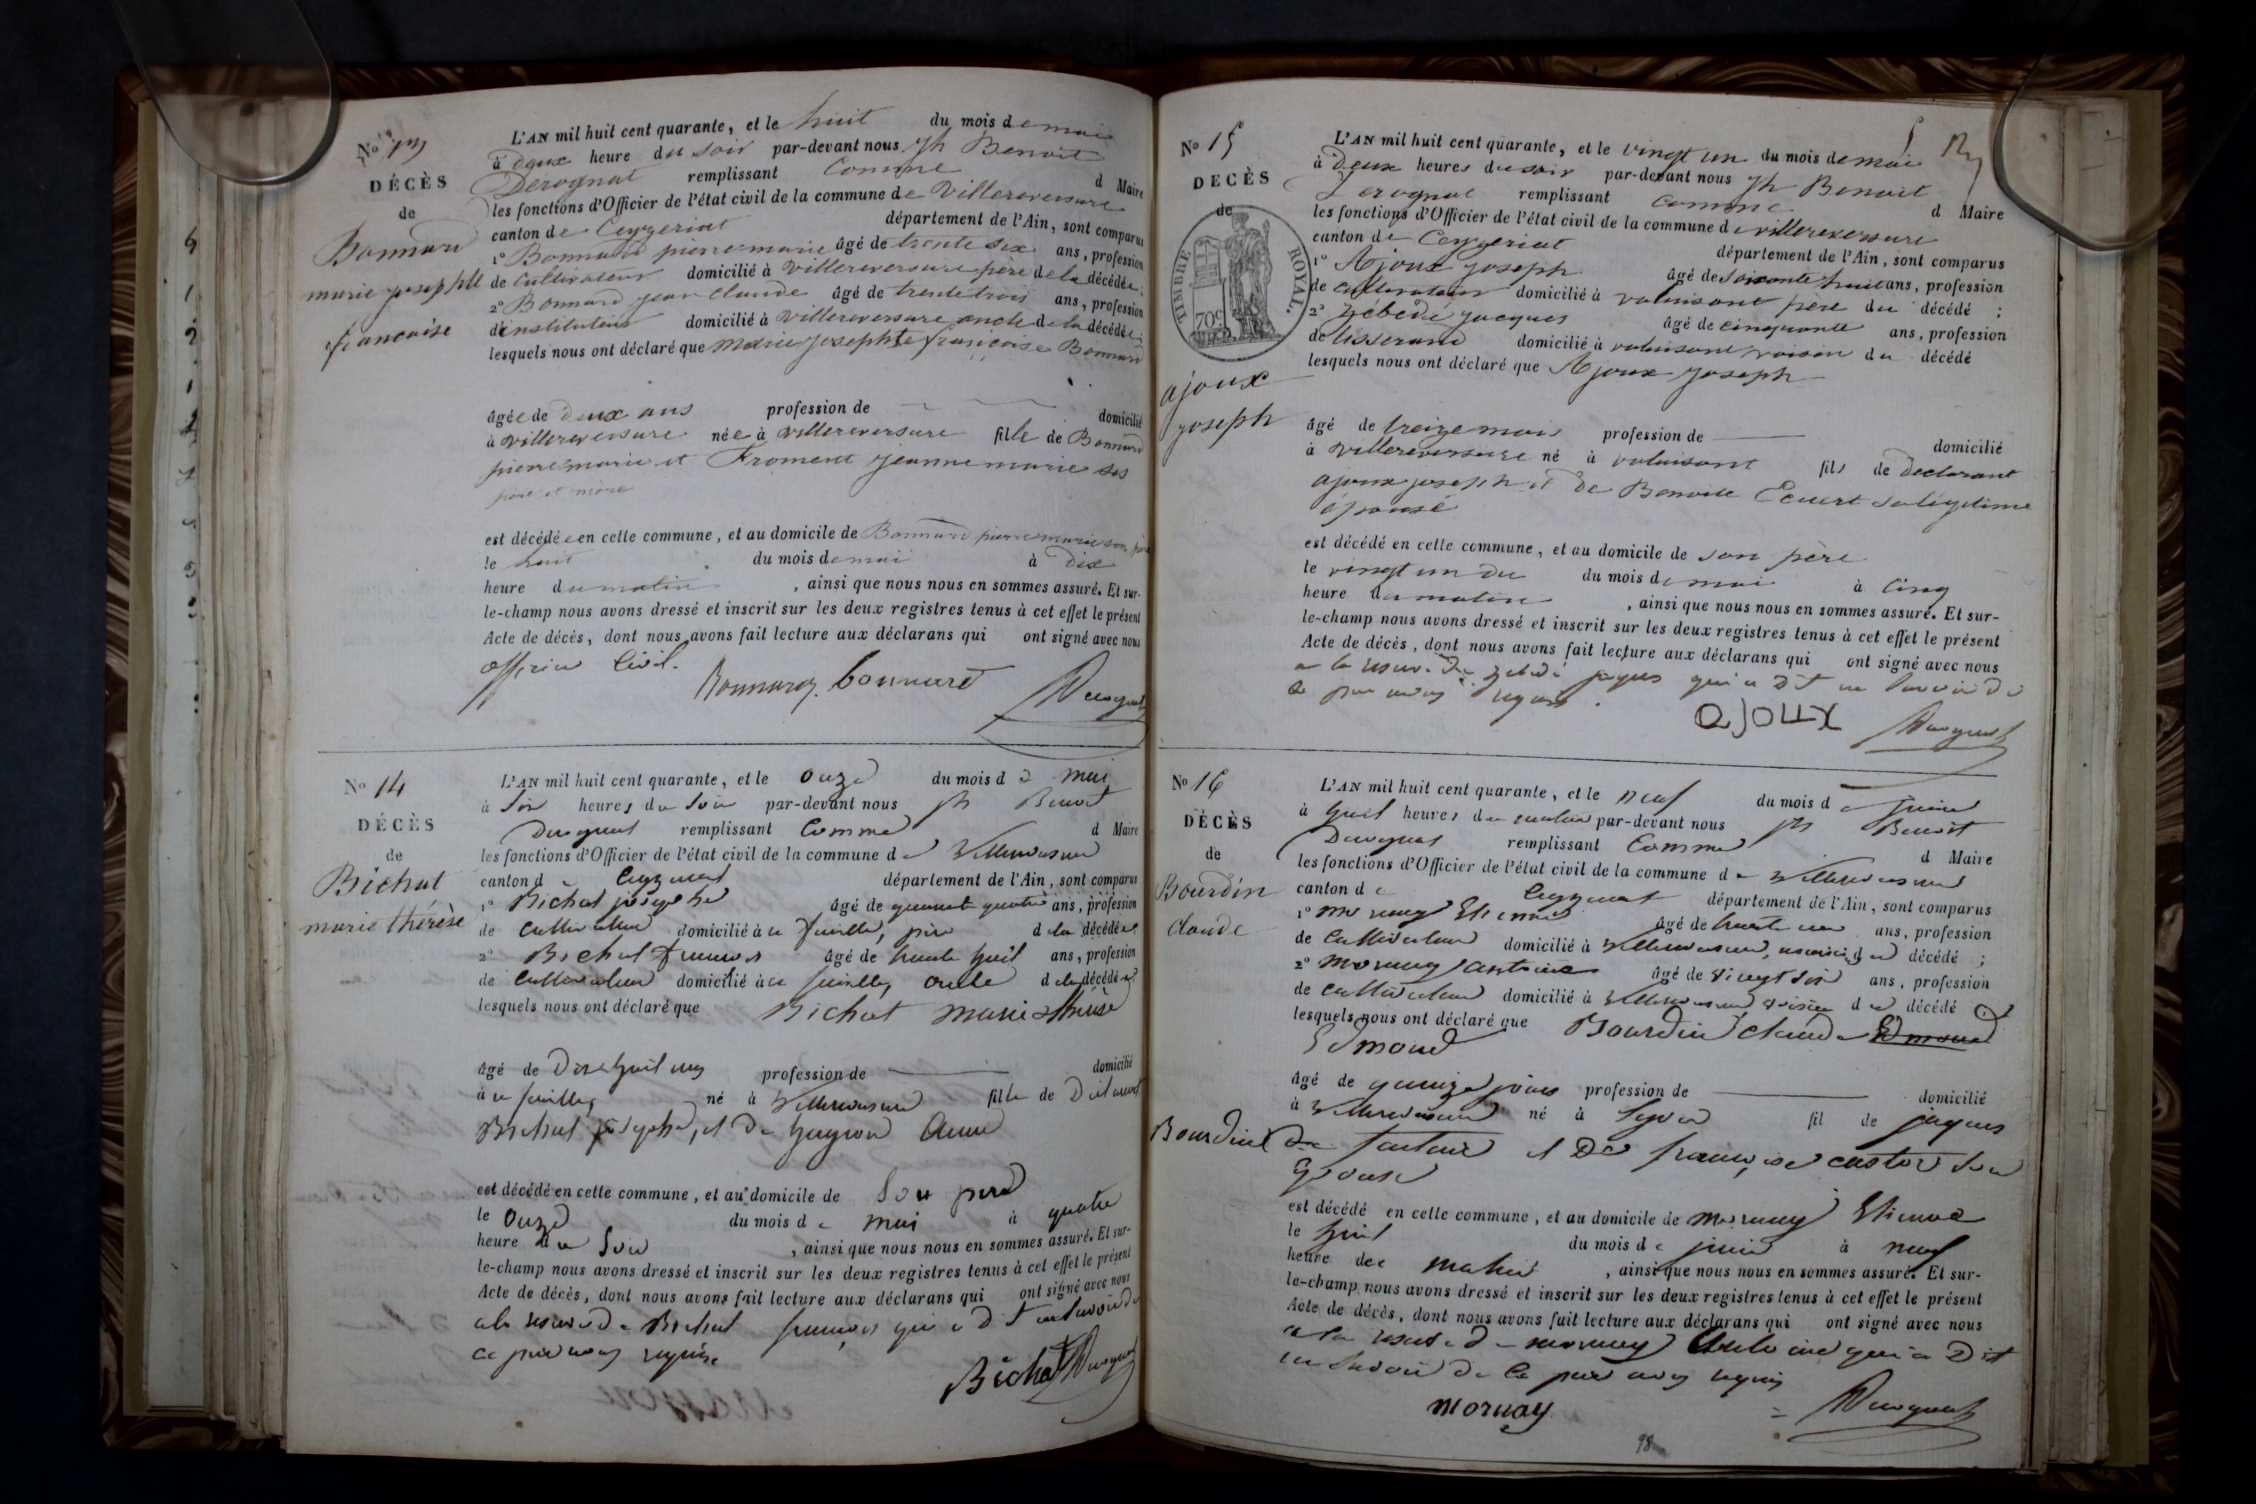 No 13
DÉCÈS
de
Bonnard
marie josephte
francoise
L'AN mil huit cent quarante, et le huit du mois de mai
à deux heure du soir par-devant nous Jh Benoit
Derognat remplissant Comme d Maire
les fonctions d'Officier de l'état civil de la commune de Villereversure
canton de Ceyzeriat département de l'Ain, sont comparus
1° Bonnard pierre marie âgé de trente six ans, profession
de Cultivateur domicilié à Villereversure père de la décédée;
2° Bonnard jean Claude âgé de trente trois ans, profession
d'instituteur domicilié à Villereversure oncle de la décédée;
lesquels nous ont déclaré que marie josephte francoise Bonnard
âgée de deux ans profession de domicilié
à villereversure née à villereversure fille de Bonnard
pierre marie et Froment jeanne marie ses
père et mère
est décédée en cette commune, et au domicile de Bonnard pierre marie son père
le huit du mois de mai à dix
heure du matin, ainsi que nous nous en sommes assuré. Et sur-
le-champ nous avons dressé et inscrit sur les deux registres tenus à cet effet le présent
Acte de décès, dont nous avons fait lecture aux déclarans qui ont signé avec nous
officier Civil.
Bonnard bonnard Derognat
No 14
DÉCÈS
de
Bichat
marie thérèse
L'AN mil huit cent quarante, et le onze du mois de mai
à Six heures du Soir par-devant nous Jh Benoit
Derognat remplissant Comme d Maire
les fonctions d'Officier de l'état civil de la commune de Villereversure
canton de Ceyzeriat département de l'Ain, sont comparus
1° Bichat josephe âgé de quarante quatre ans, profession
de Cultivateur domicilié à père de la décédée
2° Bichat francois âgé de trente huit ans, profession
de Cultivateur domicilié à oncle de la décédée
lesquels nous ont déclaré que Bichat marie thérèse
âgé de Dix huit ans profession de domicilié
à né à Villereversure fille de Déclarant
Bichat josephe, et de Anne
est décédé en cette commune, et au domicile de Son père
le onze du mois de mai à quatre
heure du Soir, ainsi que nous nous en sommes assuré. Et sur-
le-champ nous avons dressé et inscrit sur les deux registres tenus à cet effet le présent
Acte de décès, dont nous avons fait lecture aux déclarans qui ont signé avec nous
a la reserve de Bichat francois qui a dit ne savoir de
ce par nous requis
Bichat Derognat
No 15
DÉCÈS
de
TIMBRE ROYAL.
70c
ajoux
joseph
L'AN mil huit cent quarante, et le vingt un du mois de mai
à Deux heures du soir par-devant nous Jh Benoit
Derognat remplissant Comme d Maire
les fonctions d'Officier de l'état civil de la commune de villereversure
canton de Ceyzeriat département de l'Ain, sont comparus
1° Ajoux joseph âgé de soixante huit ans, profession
de cultivateur domicilié à valuisant père du décédé;
2° Zébédé jacques âgé de cinquante ans, profession
de tisserand domicilié à valuisant voisin du décédé
lesquels nous ont déclaré que Ajoux joseph
âgé de treize mois profession de domicilié
à Villereversure né à valuisant fils de déclarant
ajoux joseph et de Benoite sa légitime
épouse
est décédé en cette commune, et au domicile de son père
le vingt un du du mois de mai à cinq
heure du matin, ainsi que nous nous en sommes assuré. Et sur-
le-champ nous avons dressé et inscrit sur les deux registres tenus à cet effet le présent
Acte de décès, dont nous avons fait lecture aux déclarans qui ont signé avec nous
a la reserve de Zébédé jacques qui a dit ne savoir de
ce par nous requis.
ajoux Derognat
No 16
DÉCÈS
de
Bourdin
claude
L'AN mil huit cent quarante, et le neuf du mois de juin
à huit heures du matin par-devant nous Jh Benoit
Derognat remplissant Comme d Maire
les fonctions d'Officier de l'état civil de la commune de Villereversure
canton de Ceyzeriat département de l'Ain, sont comparus
1° mornay Etienne âgé de trente un ans, profession
de Cultivateur domicilié à Villereversure, du décédé;
2° mornay antoine âgé de vingt six ans, profession
de Cultivateur domicilié à Villereversure voisin du décédé
lesquels nous ont déclaré que Bourdin claude Edmond
Edmond
âgé de quinze jours profession de domicilié
à Villereversure né à Lyon fil de jaques
Bourdin et de françoise castor son
Epouse
est décédé en cette commune, et au domicile de mornay Etienne
le huit du mois de juin à neuf
heure du matin, ainsi que nous nous en sommes assuré. Et sur-
le-champ nous avons dressé et inscrit sur les deux registres tenus à cet effet le présent
Acte de décès, dont nous avons fait lecture aux déclarans qui ont signé avec nous
a la reserve de mornay antoine qui a Dit
ne Savoir de ce par nous requis
mornay Derognat
98